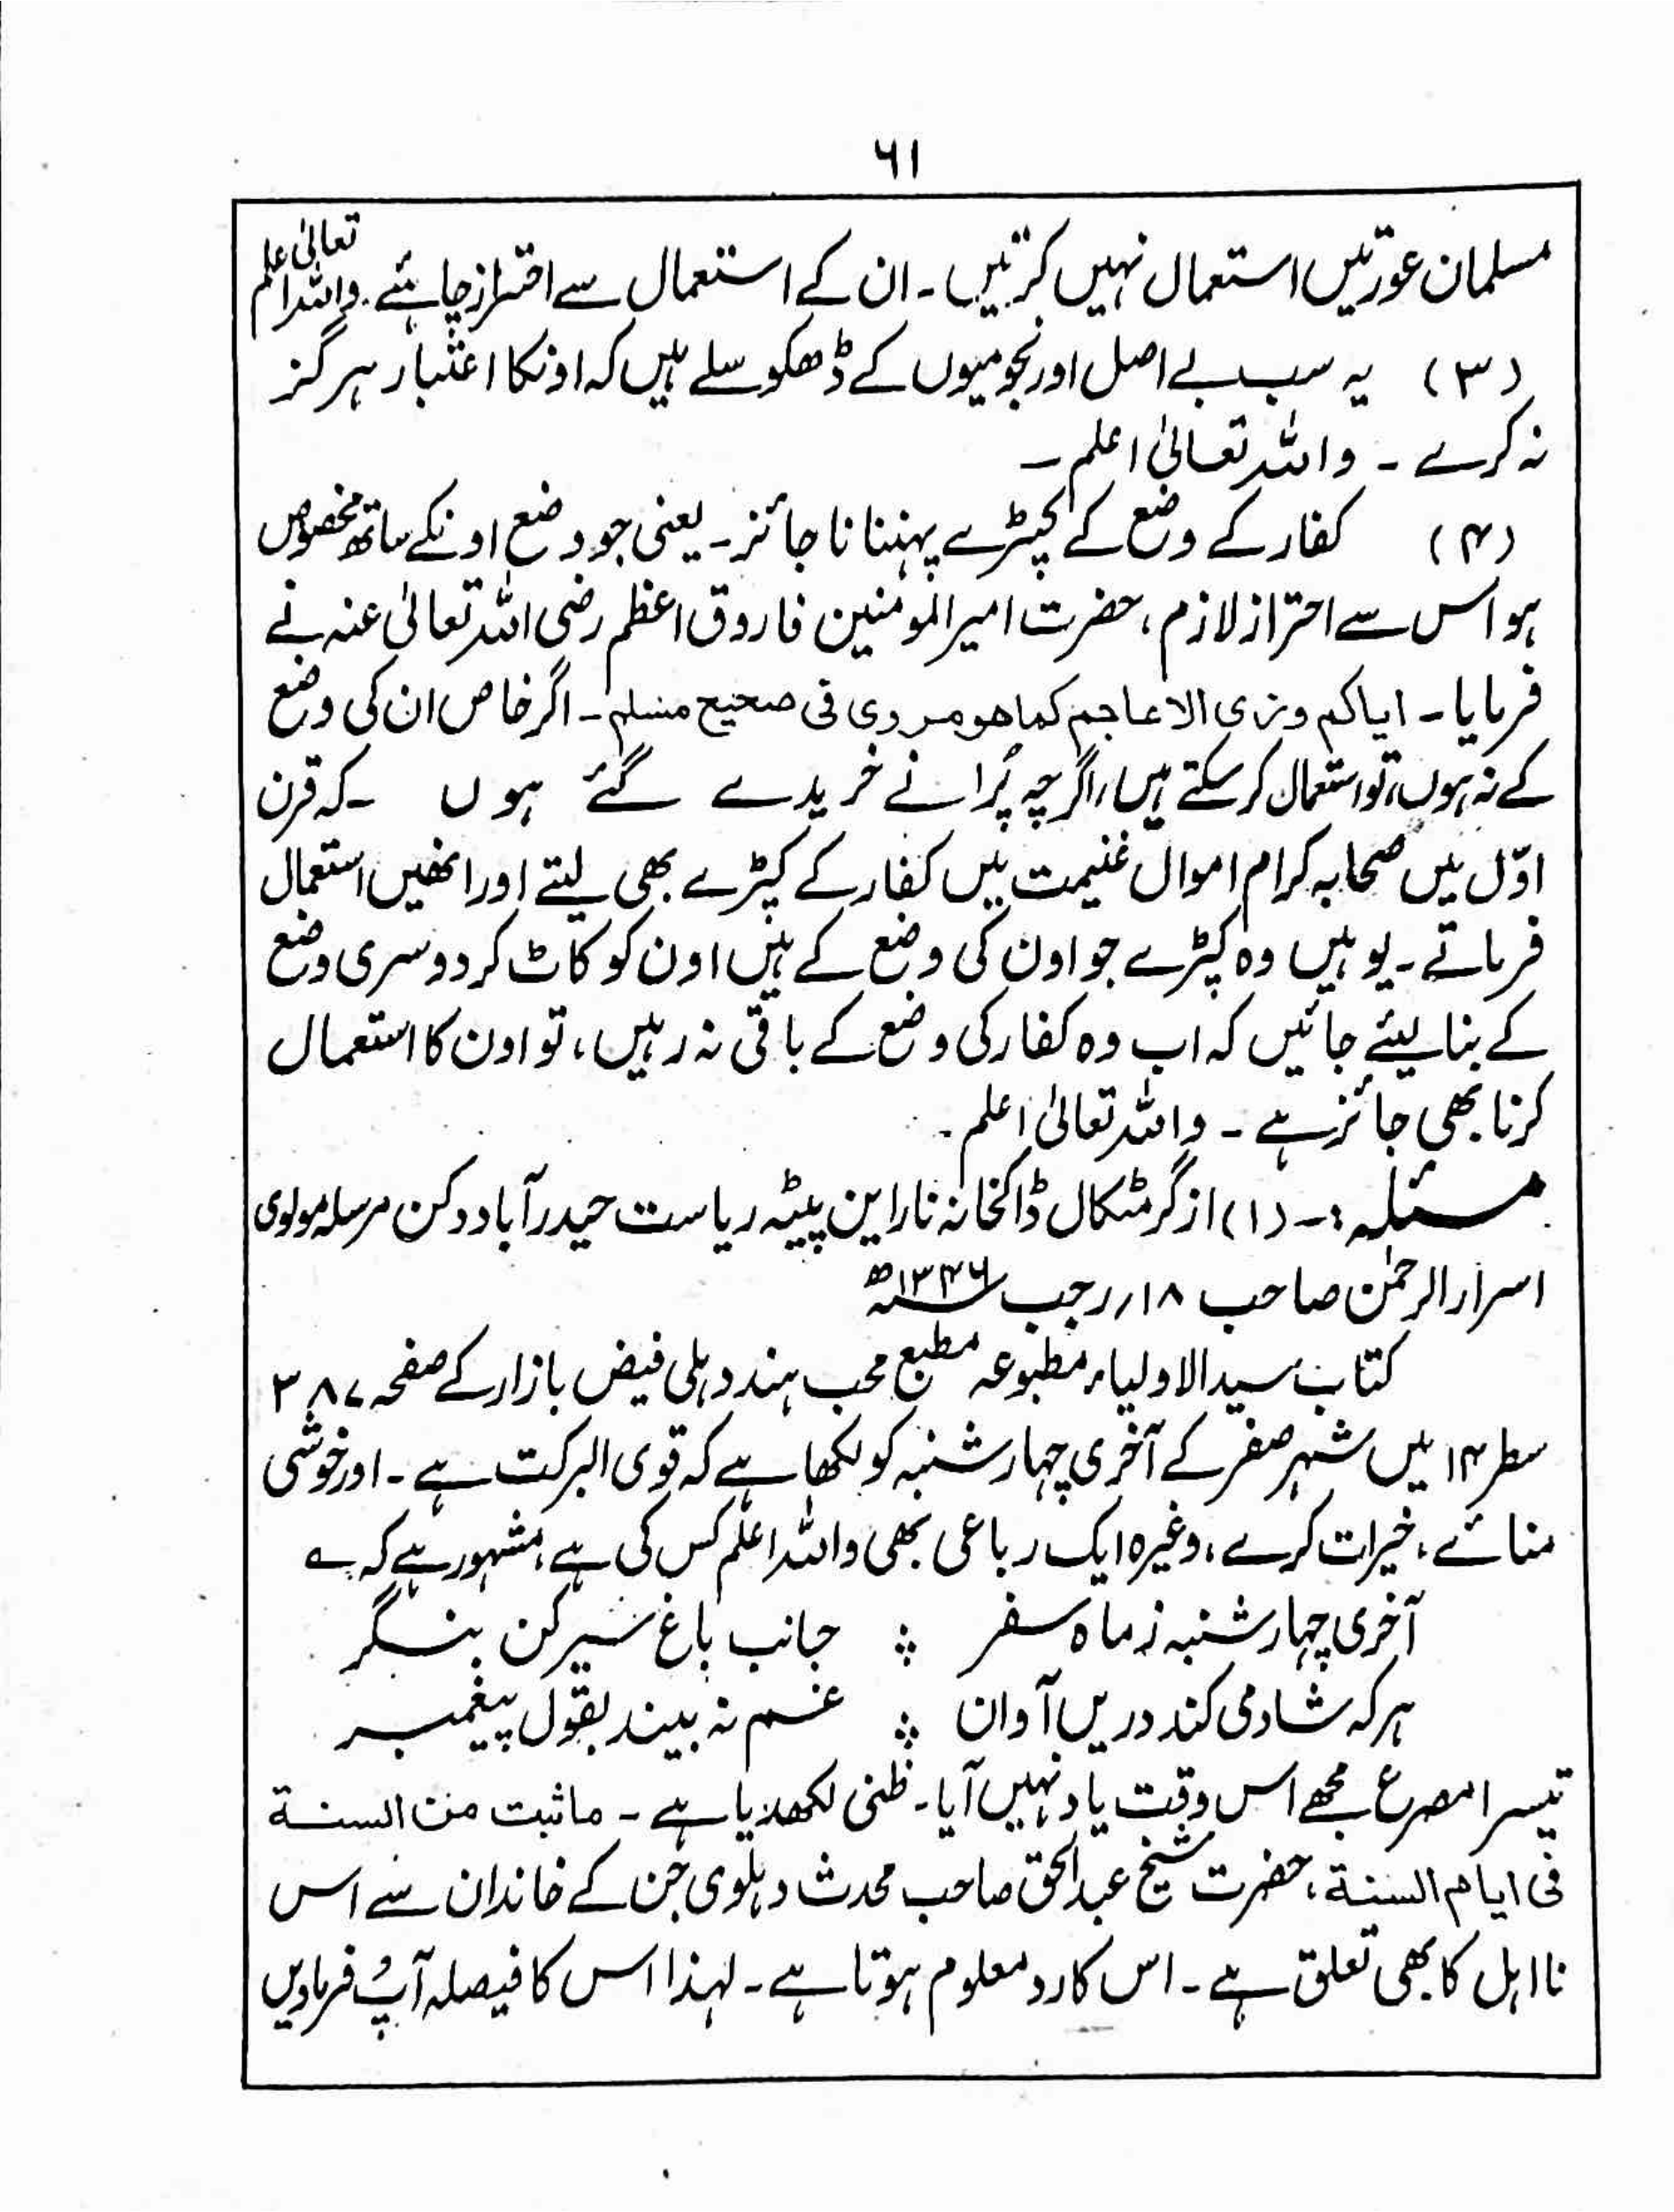 ۶۱
مسلمان عورتیں استعمال نہیں کرتیں۔ ان کے استعمال سے احتراز چاہئے۔ واللہ تعالیٰ اعلم
(۳) یہ سب بے اصل اور نجومیوں کے ڈھکوسلے ہیں کہ اونکا اعتبار ہرگز
نہ کرے ۔ واللہ تعالیٰ اعلم۔
(۴) کفار کے وضع کے کپڑے پہننا نا جائز۔ یعنی جو وضع اونکے ساتھ مخصوص
ہو اس سے احتراز لازم، حضرت امیر المومنین فاروق اعظم رضی اللہ تعالیٰ عنہ نے
فرمایا۔ ایاکم وزی الاعاجم کما ھو مروی فی صحیح مسلم۔ اگر خاص ان کی وضع
کے نہ ہوں، تو استعمال کر سکتے ہیں، اگرچہ پُرانے خریدے گئے ہوں ۔کہ قرن
اوّل میں صحابہ کرام اموال غنیمت میں کفار کے کپڑے بھی لیتے اور انھیں استعمال
فرماتے۔ یوہیں وہ کپڑے جو اون کی وضع کے ہیں اون کو کاٹ کر دوسری وضع
کے بنا لیئے جائیں کہ اب وہ کفار کی وضع کے باقی نہ رہیں، تو اون کا استعمال
کرنا بھی جائز ہے ۔ واللہ تعالیٰ اعلم۔
مسئلہ :۔ (۱) از گرمٹکال ڈاکخانہ نارائن پیٹہ ریاست حیدرآباد دکن مرسلہ مولوی
اسرار الرحمٰن صاحب ۱۸؍ رجب ۱۳۴۶ھ
کتاب سید الاولیاء مطبوعہ مطبع محب ہند دہلی فیض بازار کے صفحہ ۳۸۷
سطر ۱۴ میں شہر صفر کے آخری چہار شنبہ کو لکھا ہے کہ قوی البرکت ہے ۔ اور خوشی
منائے، خیرات کرے، وغیرہ ایک رباعی بھی واللہ اعلم کس کی ہے، مشہور ہے کہ ؎
آخری چہار شنبہ ز ماہ سفر ؞ جانب باغ سیر کن بنگر
ہر کہ شادمی کند دریں آوان ؞ غم نہ بیند بقول پیغمبر
تیسرا مصرع مجھے اس وقت یاد نہیں آیا۔ ظنی لکھدیا ہے ۔ ماثبت من السنة
فی ایام السنة، حضرت شیخ عبدالحق صاحب محدث دہلوی جن کے خاندان سے اس
نااہل کا بھی تعلق ہے ۔ اس کا رد معلوم ہوتا ہے ۔ لہذا اس کا فیصلہ آپ فرمادیں